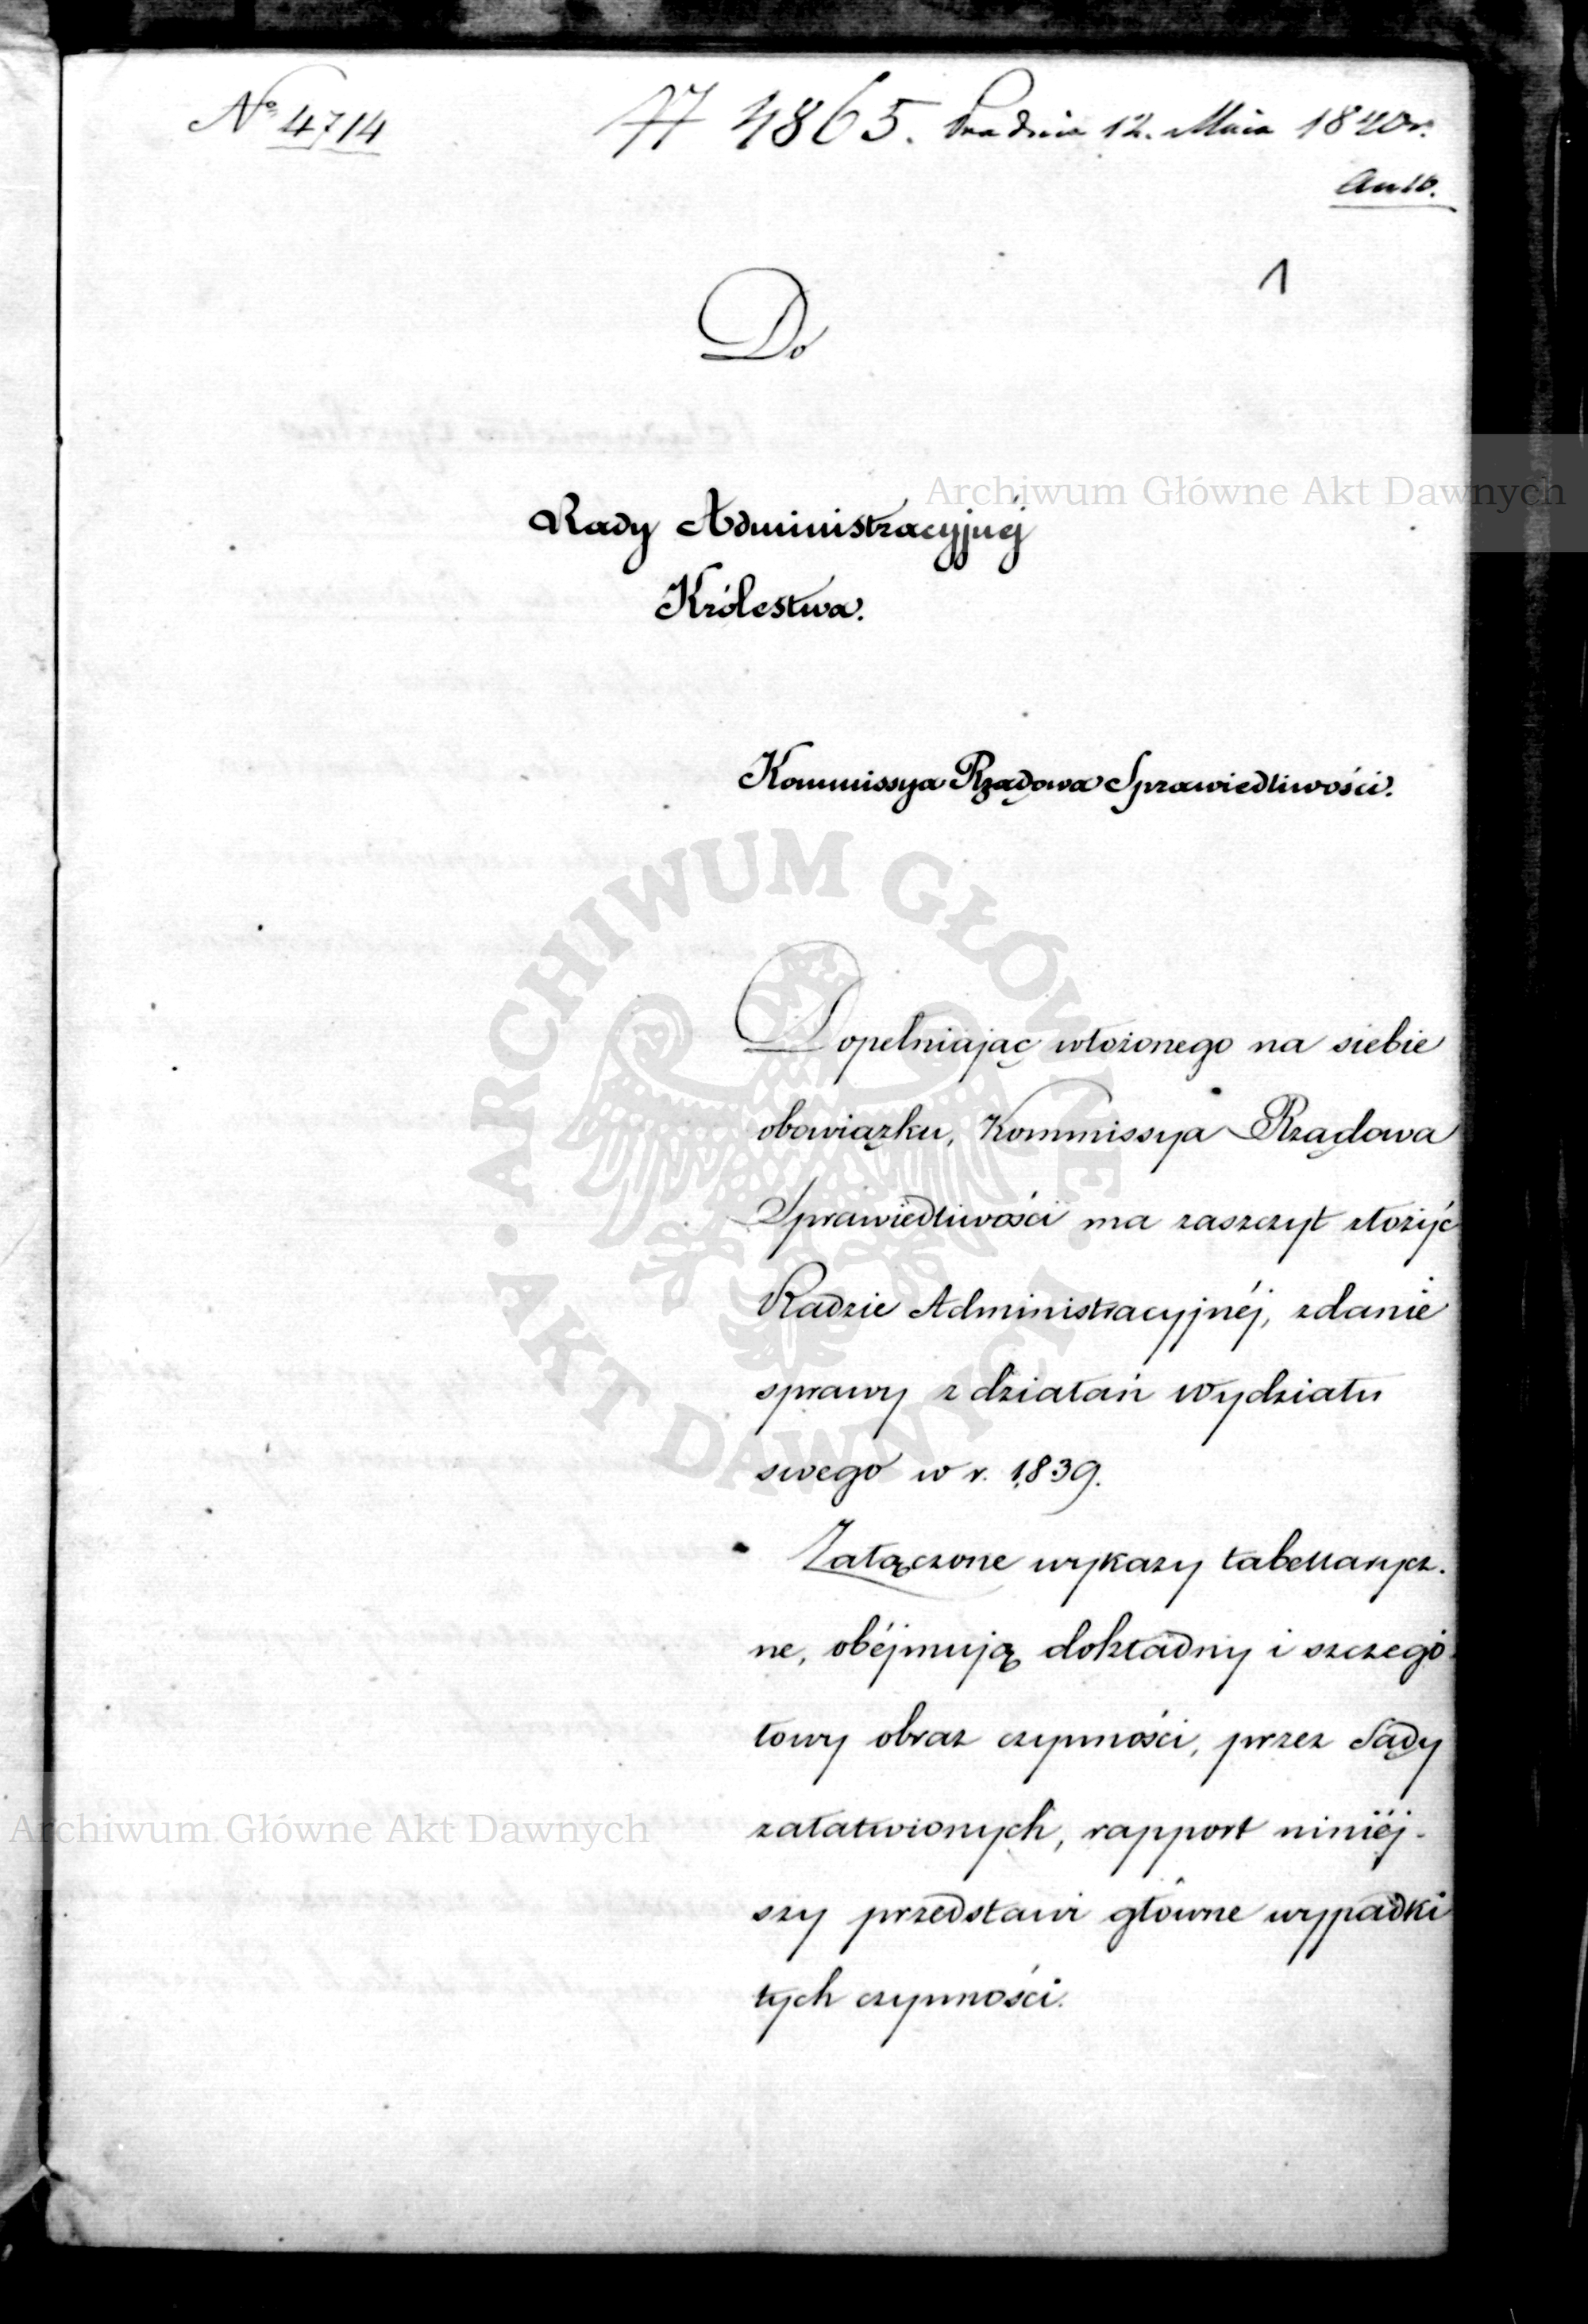 Nº 4714
4865. Pra dnia 12. Maia 1840 r.
1
Do
Rady Administracyjnéj
Królestwa.
Kommissya Rządowa Sprawiedliwości.
Dopełniając włożonego na siebie
obowiązku, Kommissya Rządowa
Sprawiedliwości ma zaszczyt złożyć
Radzie Administracyjnéj, zdanie
sprawy z działań Wydziału
swego w r. 1839.
Załączone wykazy tabellarycz-
ne, obéjmują dokładny i szczegó-
łowy obraz czynności, przez Sądy
załatwionych, rapport niniéj-
szy przedstawi główne wypadki
tych czynności.
Archiwum Główne Akt Dawnych
ARCHIWUM GŁÓWNE · AKT DAWNYCH ·
Archiwum Główne Akt Dawnych